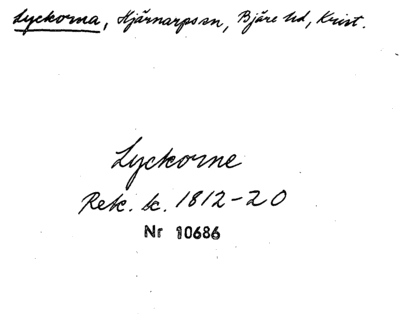 Lyckorna, Hjärnarps sn, Bjäre hd, Krist.
Lyckorne
Rek. k. 1812-20
Nr 10686